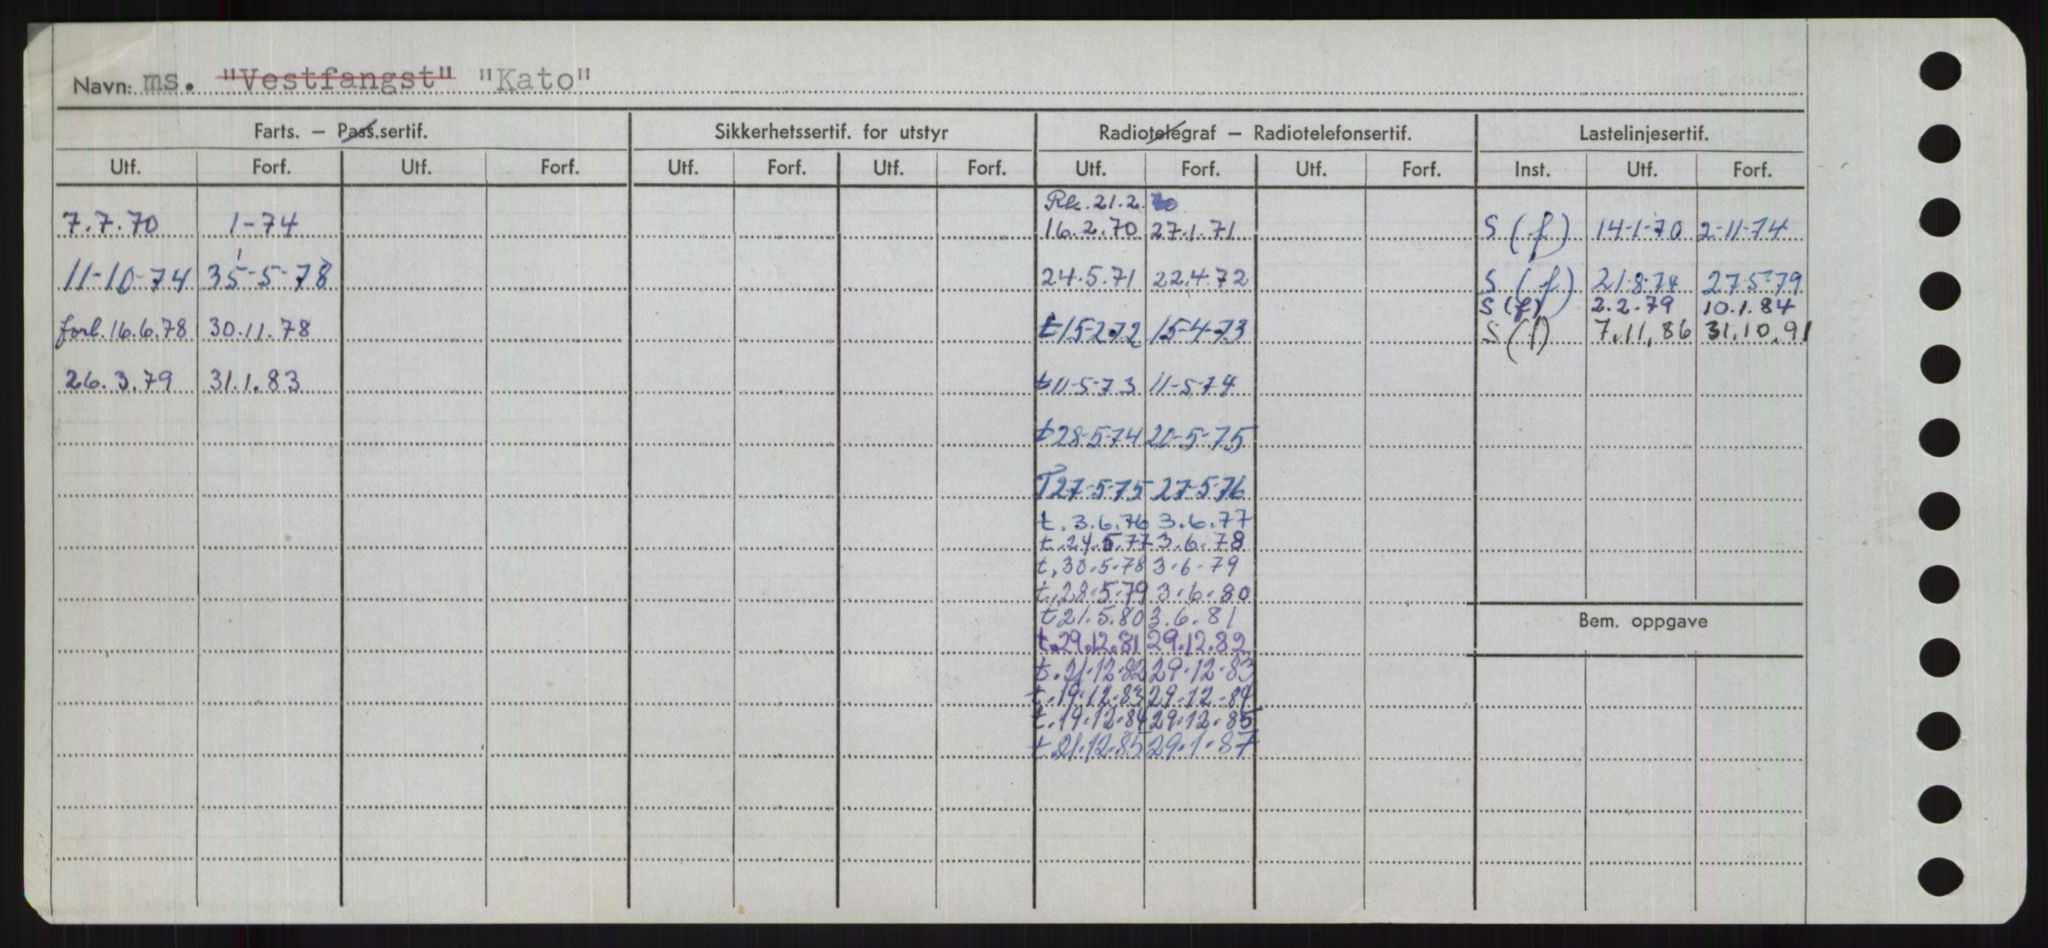 Navn: ms. "Vestfangst" "Kato"
Farts. – Pass.sertif. Sikkerhetssertif. for utstyr Radiotelegraf – Radiotelefonsertif. Lastelinjesertif.
Utf. Forf. Utf. Forf. Utf. Forf. Utf. Forf. Utf. Forf. Utf. Forf. Inst. Utf. Forf.
21.2.
7.7.70 1-74 16.2.70 27.1.71 S (f) 14-1-70 2-11-74
11-10-74 5-78 24.5.71 22.4.72 S (f) 21-8-74 27-5-79
S (f) 2.2.79 10.1.84
forl. 16.6.78 30.11.78 t 15-2-72 15-4-73 S (f) 7.11.86 31.10.91
26.3.79 31.1.83 t 11-5-73 11-5-74
t 28-5-74 20-5-75
T 27-5-75 27-5-76
t. 3.6.76 3.6.77
t. 24.5.77 3.6.78
t. 30.5.78 3.6.79
t. 28.5.79 3.6.80
t 21.5.80 3.6.81
Bem. oppgave
t. 29.12.81 29.12.82
t. 21.12.82 29.12.83
t. 19.12.83 29.12.84
t. 19.12.84 29.12.85
t. 21.12.85 29.1.87